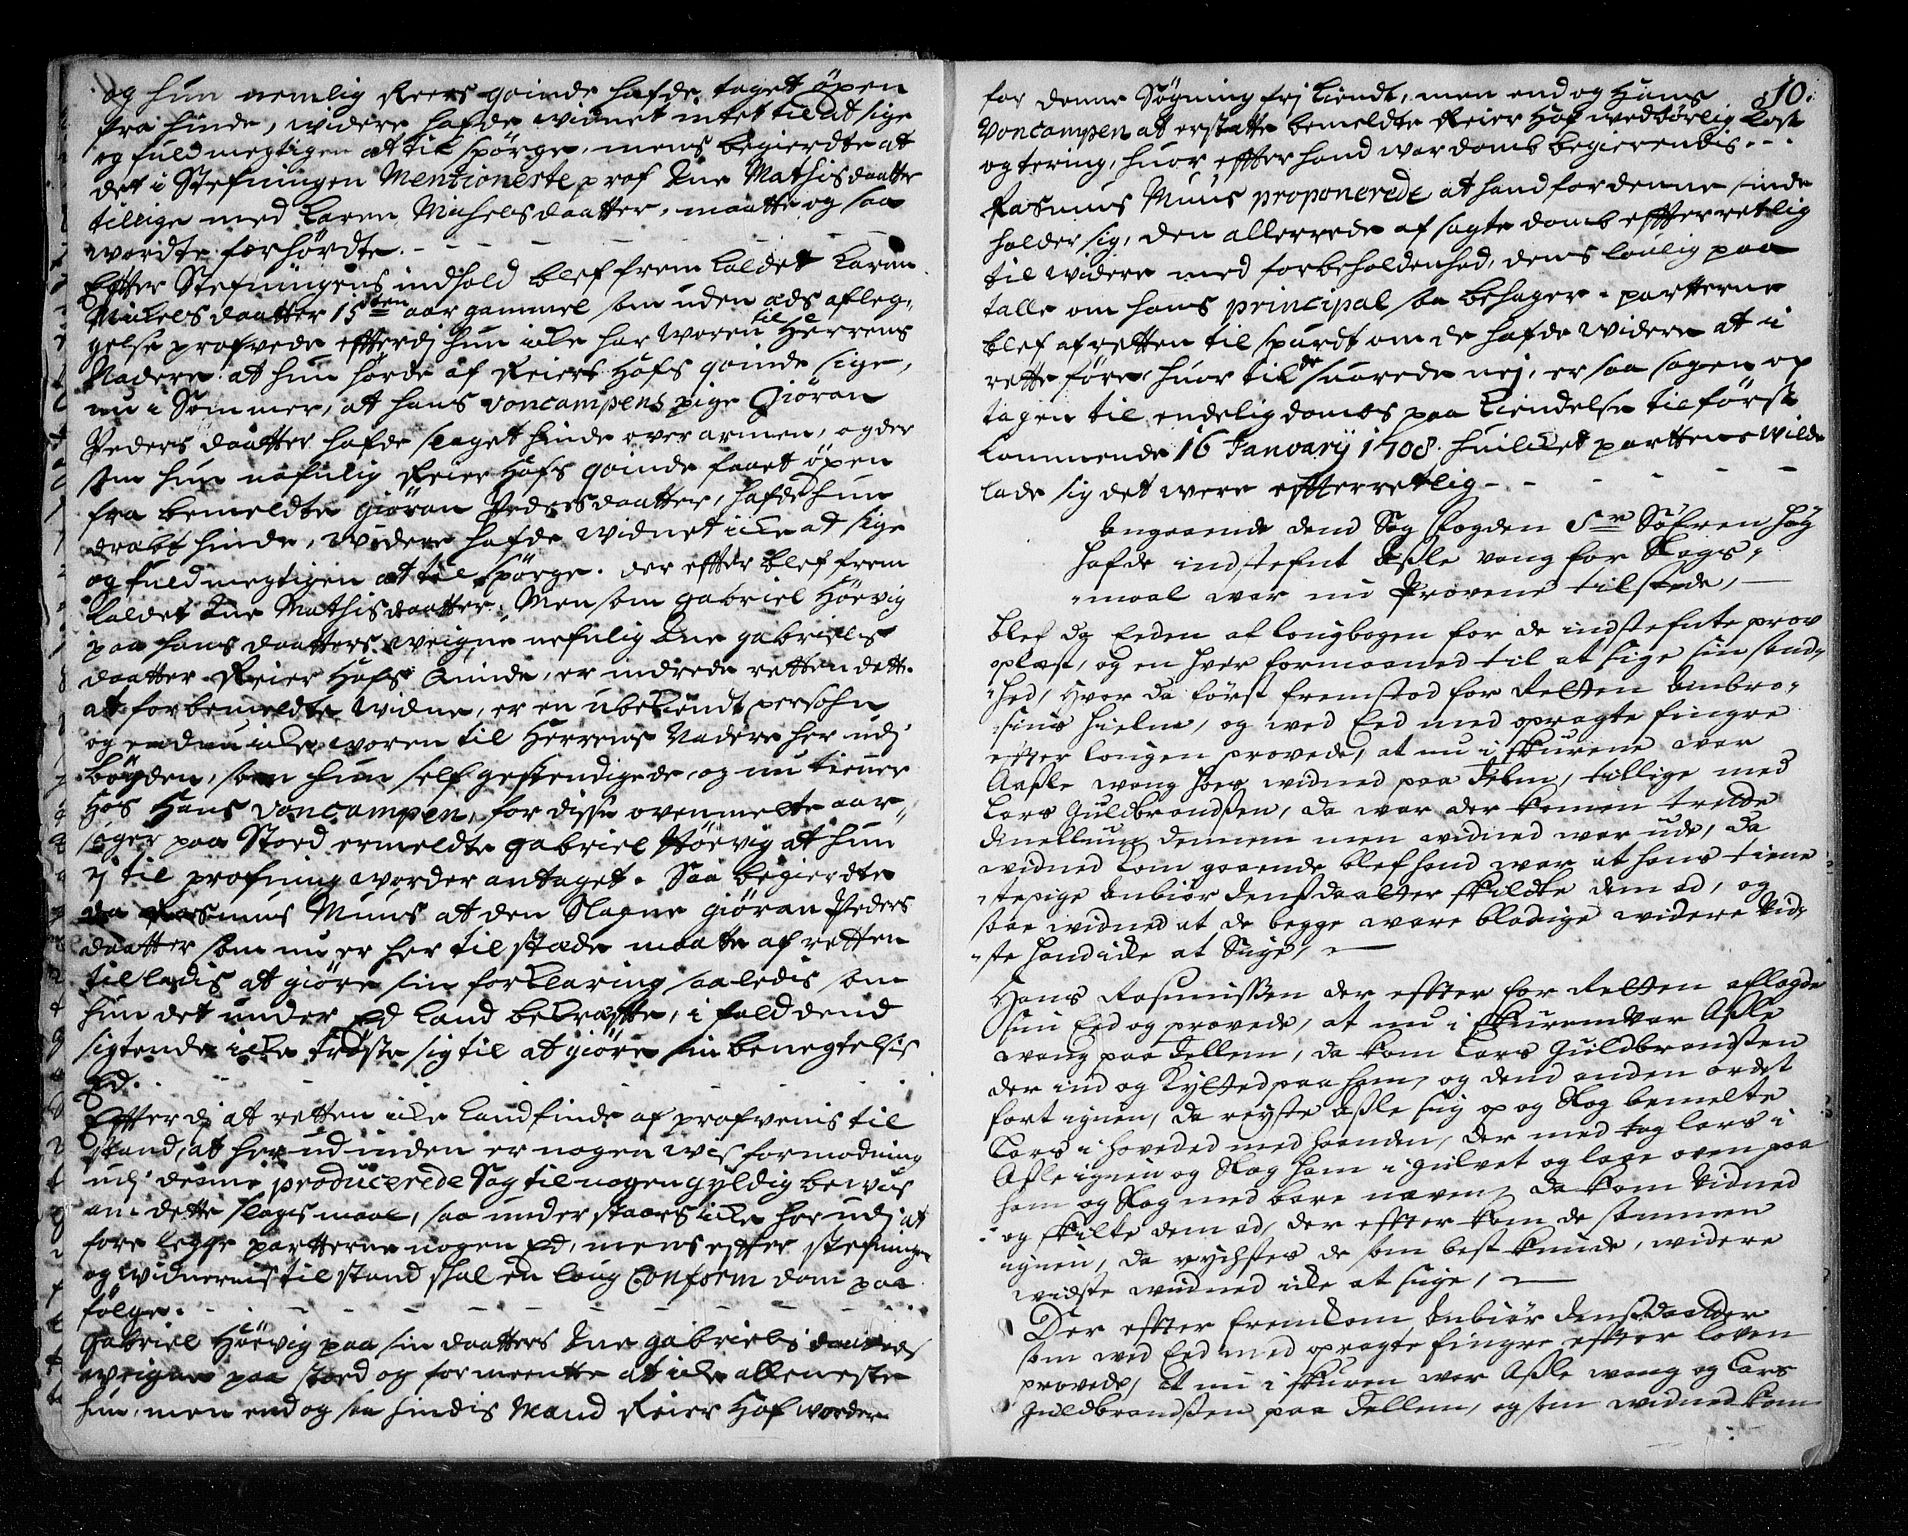 og hun nemlig Reers qvinde hafde taget öxen
fra hinde, widere hafde widnet intet til at sige
og fuldmegtigen at til spörge, mens begierdte at
det i Stefningen Mentionerte prof Ane Mathisdaatter
tillige med Karen Michelsdaatter, maatte og saa
wordte forhördte.
Efter Stefningens indhold blef frem kaldet Karen
Mickelsdaatter 15den aar gammel som uden æds afleg-
gelse profvede effterdj hun icke har woren til Herrens
Nadere at hun hörde af Reiers Hofs qvinde sige,
nu i Sommer, at hans voncampens pige Giöran
Peders daatter hafde slaget hinde over armen, og der
som hun nefnlig Reier Hofs qvinde faaet öxen
fra bemeldte Giöran Pedersdaatter, hafde hun
drabt hinde, widere hafde widnet icke at sige
og fuldmegtigen at til spörge. der effter blef frem
kaldet Ane Mathisdaatter, Men som Gabriel Höevig
paa hans daatters weigne nefnlig Ane Gabriels
daatter Reier Hofs Qvinde, er indrede retten dette
at forbemeldte widne, er en ubekiendt persohn
og endnu icke woren til Herrens Nadere her udj
bögden, som hun self gestendigede, og nu tiener
Hos Hans voncampen, for disse ovenmelte aar-
sager paa Stoed ermeldte Gabriel Höevig at hun
ej til profning worder antaget. Saa begierdte
da Rasmus Muus at den Slagne Giöran Peders
daatter som nu er her tilstæde maatte af retten
tilladis at giöre sin forklaring saaledis som
hun det under Ed kand bekræffte, i fald dend
sigtende icke tröster sig til at giöre sin benegtelsis
Ed.
Effterdj at retten icke kand finde af profvenis til
stand, at her ud inden er nogen wis formodning
udj denne producerede Sag til nogen gyldig bewis
om dette slagsmaal, saa understaaes icke her udj at
fore legge partterne nogen Ed, mens effter Stefningen
og widnernis tilstand skal en loug Conform dom paa
fölge.
Gabriel Höevig paa sin daatters Ane Gabriels daatters
weigne paa stoed og formeentte at icke alleneste
hun, men end og saa hindis Mand Reier Hof worder
10.
for denne Sögning frj kiendt, men end og Hans
Voncampen at erstatte bemeldte Reier Hof wedbörlig kost
og tering, huor effter hand war domb begierendis.
Rasmus Muus proponerede at hand for denne sinde
holder sig, den allerrede af sagte domb effterretlig
til widere med forbeholdenhed, dens lovlig paa
talle om hans principal saa behager. partterne
blef af retten til spurdt om de hafde widere at i
rette före, huor til de suarede nej, er saa sagen op
tagen til endelig dombs paa kiendelse til först
kommende 16 Januarij 1708. huilket parttene wilde
lade sig det were effterretlig
Angaaende dend Sag fogden Sr Söfren Höy
hafde indstefnt Assle vang for Slags-
maal war nu Provene tilstede,
blef og Eeden af lougbogen for de indstefnte prov
oplæst, og en hver formaaned til at sige sin sand-
hed, Hvor da först fremstod for Retten Ambro-
sius Hielm, og wed Eed med opragte fingre
efter lougen provede, at nu i skurene war
Aassle wang hos widned paa Felm, tillige med
Lars Guldbrandsen, da war der komen trette
imellum dennem men widned war ude, da
widned kom gaaende blef hand war at hans tiene
stepige Anbiör Jensdaatter skildte dem ad, og
saae widned at de begge ware blodige widere wid-
ste hand icke at Sige,
Hans Rasmussen der effter for Retten aflagde
sin Eed og provede, at nu i skuren war Assle
wang paa Fellem, da kom Lars Guldbrandsen
der ind og kylted paa ham, og dend anden ordet
fort igien, da reyste Assle sig op og Slog bemelte
Lars i hoveded med haanden, der med tog Lars i
Assle igien og Slog ham i gulvet og laae oven paa
ham og Slog med bare næven, da kom Vidned
og skilte dem ad, der effter kom de sammen
igien, da rychstes de som best kunde, widere
widste widned icke at sige,
Der effter fremkom Anbiör Jensdaatter
som wed Eed med opragte fingre effter loven
provede, at nu i skuren war Assle wang og Lars
Guldbrandsen paa Fellem, og som widned kom